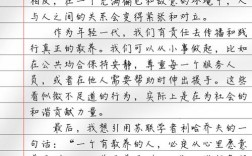 相反,在一个充满偏见和敌意的环境中,人
与人之间的关系会变得紧张和对立。
作为年轻一代,我们有责任去传播和践
行真正的教养。我们可以从小事做起,比如
在公共场合保持安静,尊重每一个服务人
员,或者在他人需要帮助时伸出援手。这些
看似微不足道的行为,实际上是在为社会的
和谐贡献力量。
最后,我想引用苏联学者利哈乔夫的一
句话:“一个有教养的人,必是从心里愿意